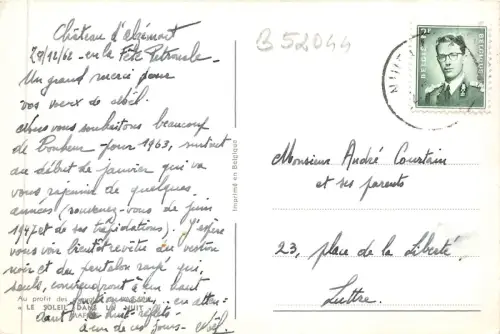 Château d'Alzémont
29/12/62 - en la Fête Patronale -
Un grand merci pour
vos vœux de Noël.
Nous vous souhaitons beaucoup
de bonheur pour 1963, surtout
au début de janvier qui va
vous rajeunir de quelques
années (souvenez-vous de juin
1947 et de ses trépidations). J'espère
vous voir bientôt revêtu du veston
noir et du pantalon rayé qui,
seuls, conviendront à un haut
fonctionnaire, en atten-
dant la huit-reflets
à un de ces jours -
Au profit des
" LE SOLEIL DANS LA NUIT
Imprimé en Belgique
B 52044
BELGIE BELGIQUE
2F
Monsieur André Courtain
et ses parents
23, place de la liberté,
Luttre.